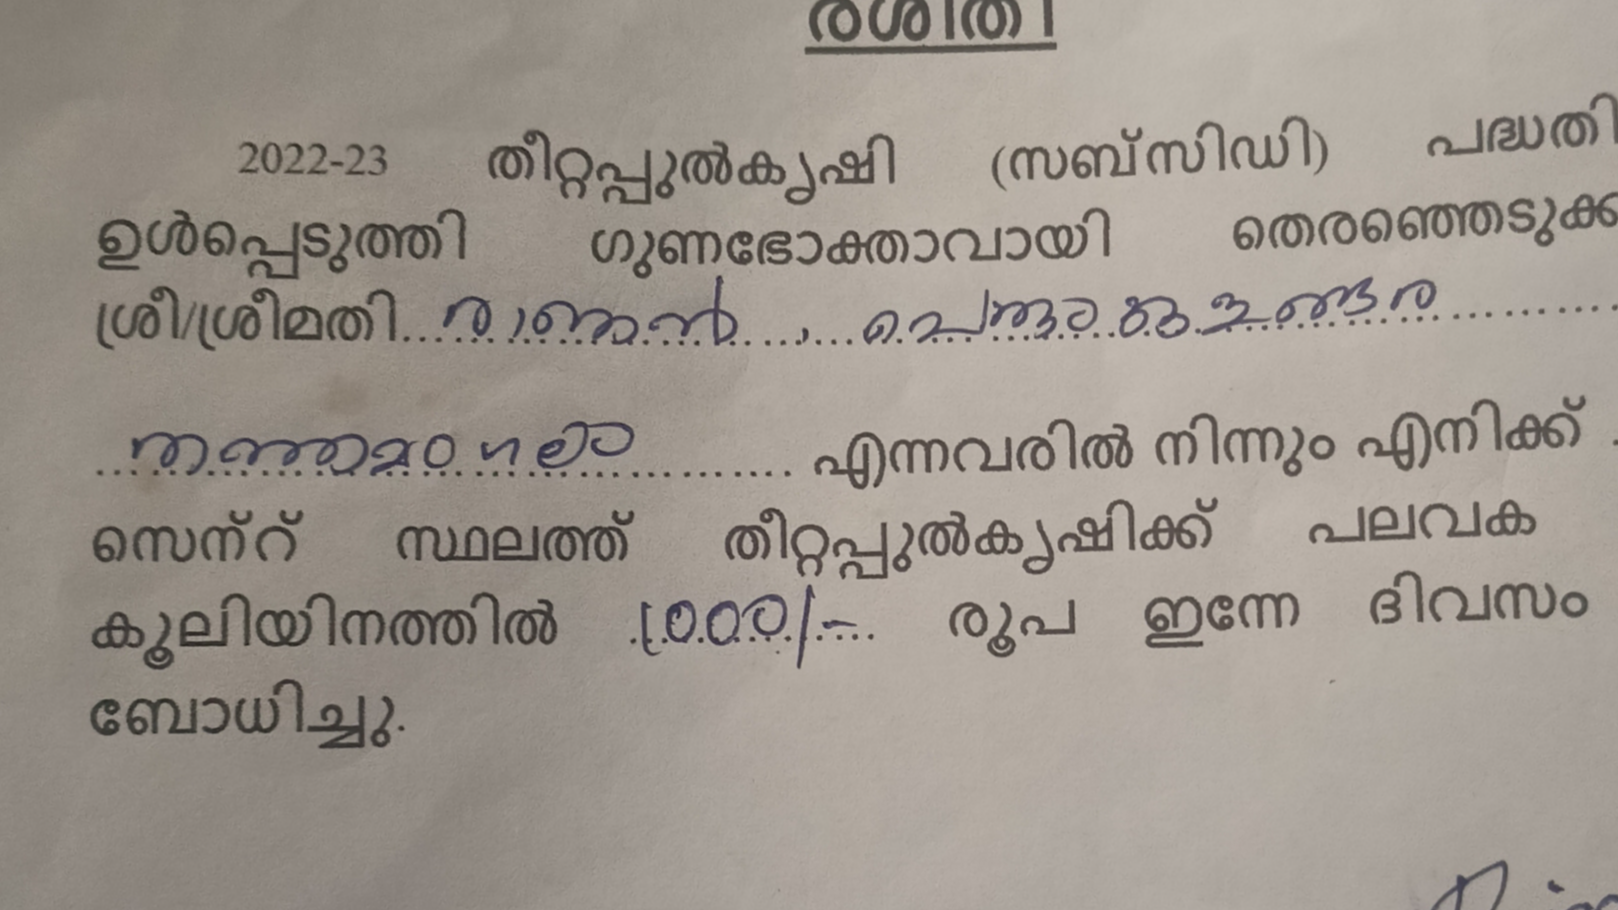 രശീതി
2022-23 തീറ്റപ്പുൽകൃഷി (സബ്സിഡി) പദ്ധതി
ഉൾപ്പെടുത്തി ഗുണഭോക്താവായി തെരഞ്ഞെടുക്ക
ശ്രീ/ശ്രീമതി
എന്നവരിൽ നിന്നും എനിക്ക്
സെന്റ് സ്ഥലത്ത് തീറ്റപ്പുൽകൃഷിക്ക് പലവക
കൂലിയിനത്തിൽ 1000/- രൂപ ഇന്നേ ദിവസം
ബോധിച്ചു.